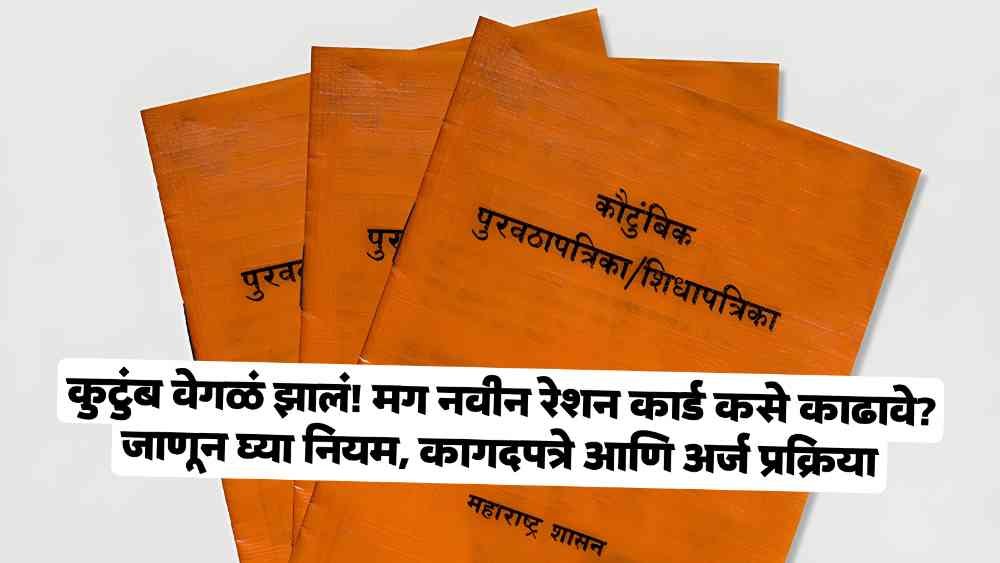 कौटुंबिक
पुरवठापत्रिका/शिधापत्रिका
पुर
पुरव
कुटुंब वेगळं झालं! मग नवीन रेशन कार्ड कसे काढावे?
जाणून घ्या नियम, कागदपत्रे आणि अर्ज प्रक्रिया
महाराष्ट्र शासन